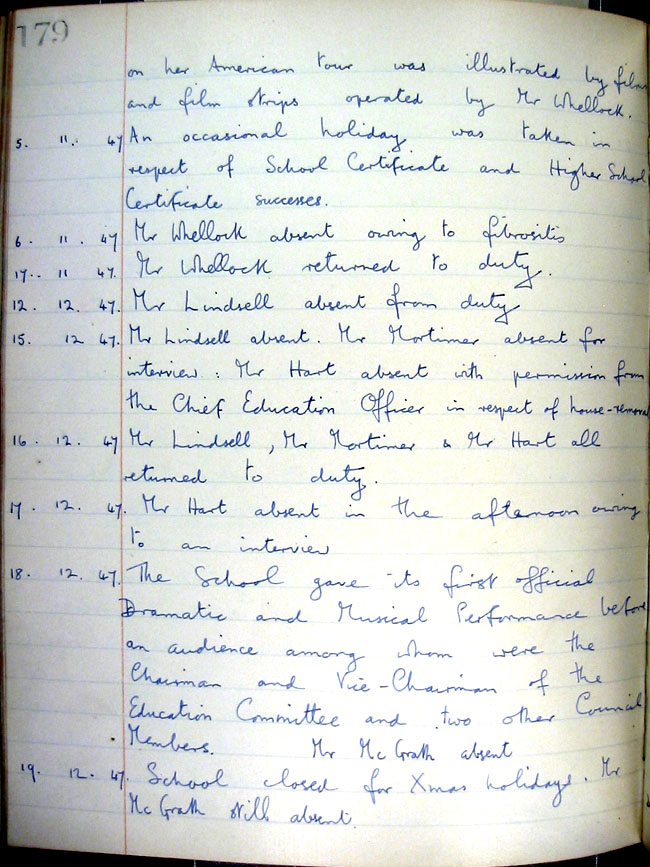 179
on her American tour was illustrated by films
and film strips operated by Mr Whellock.
5. 11. 47 An occasional holiday was taken in
respect of School Certificate and Higher School
Certificate successes.
6. 11. 47 Mr Whellock absent owing to fibrositis
17. 11 47. Mr Whellock returned to duty.
12. 12. 47. Mr Lindsell absent from duty
15. 12 47. Mr Lindsell absent. Mr Mortimer absent for
interview: Mr Hart absent with permission from
the Chief Education Officer in respect of house-removal
16. 12. 47 Mr Lindsell, Mr Mortimer & Mr Hart all
returned to duty.
17. 12. 47. Mr Hart absent in the afternoon owing
to an interview
18. 12. 47. The School gave its first official
Dramatic and Musical Performance before
an audience among whom were the
Chairman and Vice-Chairman of the
Education Committee and two other Council
Members. Mr McGrath absent
19. 12. 47. School closed for Xmas holidays. Mr
McGrath still absent.